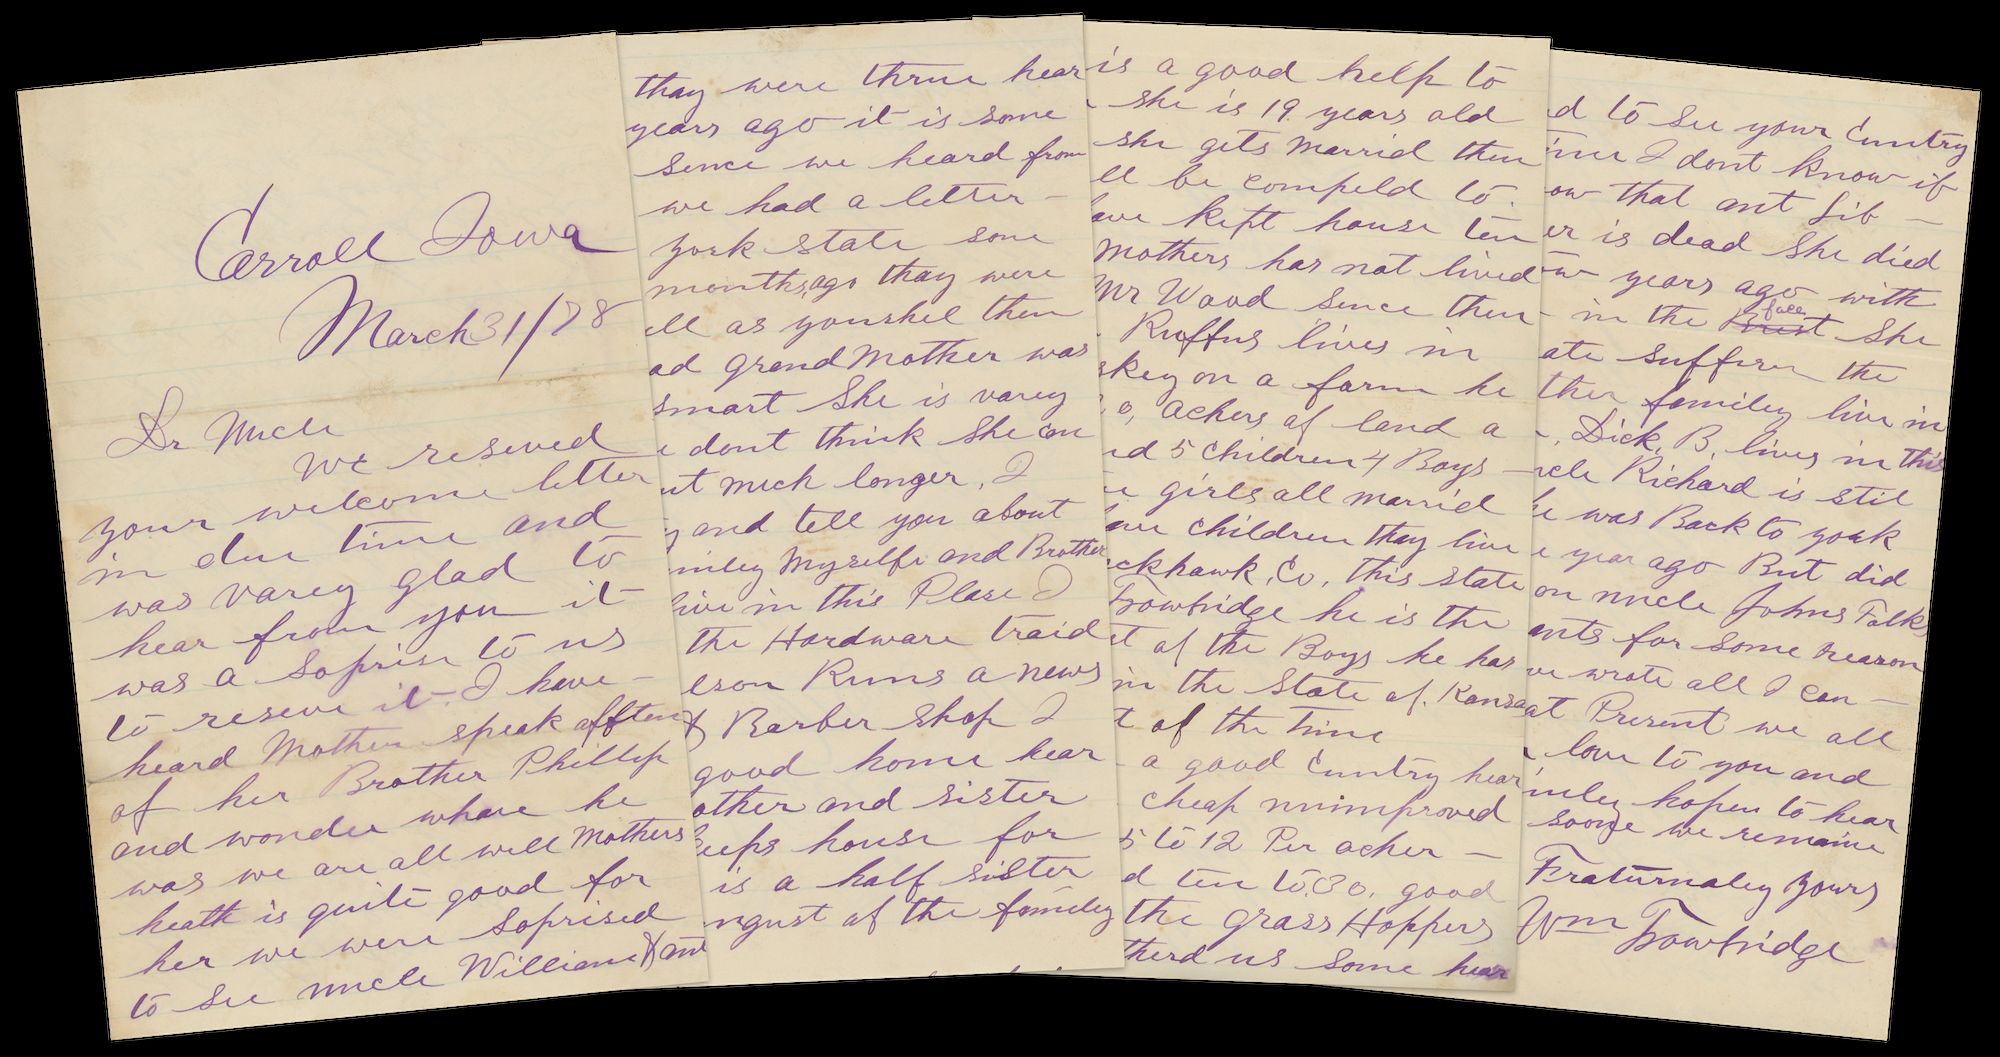 Carroll Iowa
March 31/78
Dr Uncle
We reseved
your welcome letter
in due time and
was varey glad to
hear from you it
was a Soprise to us
to reseve it. I have
heard Mother speak offten
of her Brother Phillip
and wonder whare he
was we are all well Mothers
heath is quite good for
her we were Soprised
to See uncle William & ant
thay were thrue hear
years ago it is some
sence we heard from
we had a letter
york state some
months ago thay were
ell as youshel them
ad grandMother was
smart She is varey
dont think She can
ut much longer, I
y and tell you about
miley Myselfe and Brother
live in this Plase I
the Hardware traid
lson Runs a news
& Barber Shop I
good home hear
other and sister
eeps house for
is a half sister
ngust of the familey
is a good help to
She is 19 years old
she gets Marrid then
ll be compeld to
ave kept house ten
Mothers has not lived
Mr Wood Since then
Ruffus lives in
skey on a farm he
0, achers of land a
nd 5 Children 4 Boys
girls all marrid
ave children thay live
ckhawk, Co, this state
Trowbridge he is the
st of the Boys he has
in the State of. Kansas
t of the time
a good Cuntry hear
cheap unimproved
5 to 12 Per acher
d ten to 30. good
the Grass Hoppers
therd us some hear
d to See your Cuntry
time I dont know if
ow that ant Lib
er is dead She died
ew years ago with
in the Brest fall She
ate Suffirer the
ther familey live in
Dick, B, lives in this
ncle Richard is stil
he was Back to york
e year ago But did
on uncle Johns Folks
ants for some reason
ve wrote all I can
at Present we all
love to you and
miley hopen to hear
soone we remaine
Fraturnaley yours
Wm Trowbridge